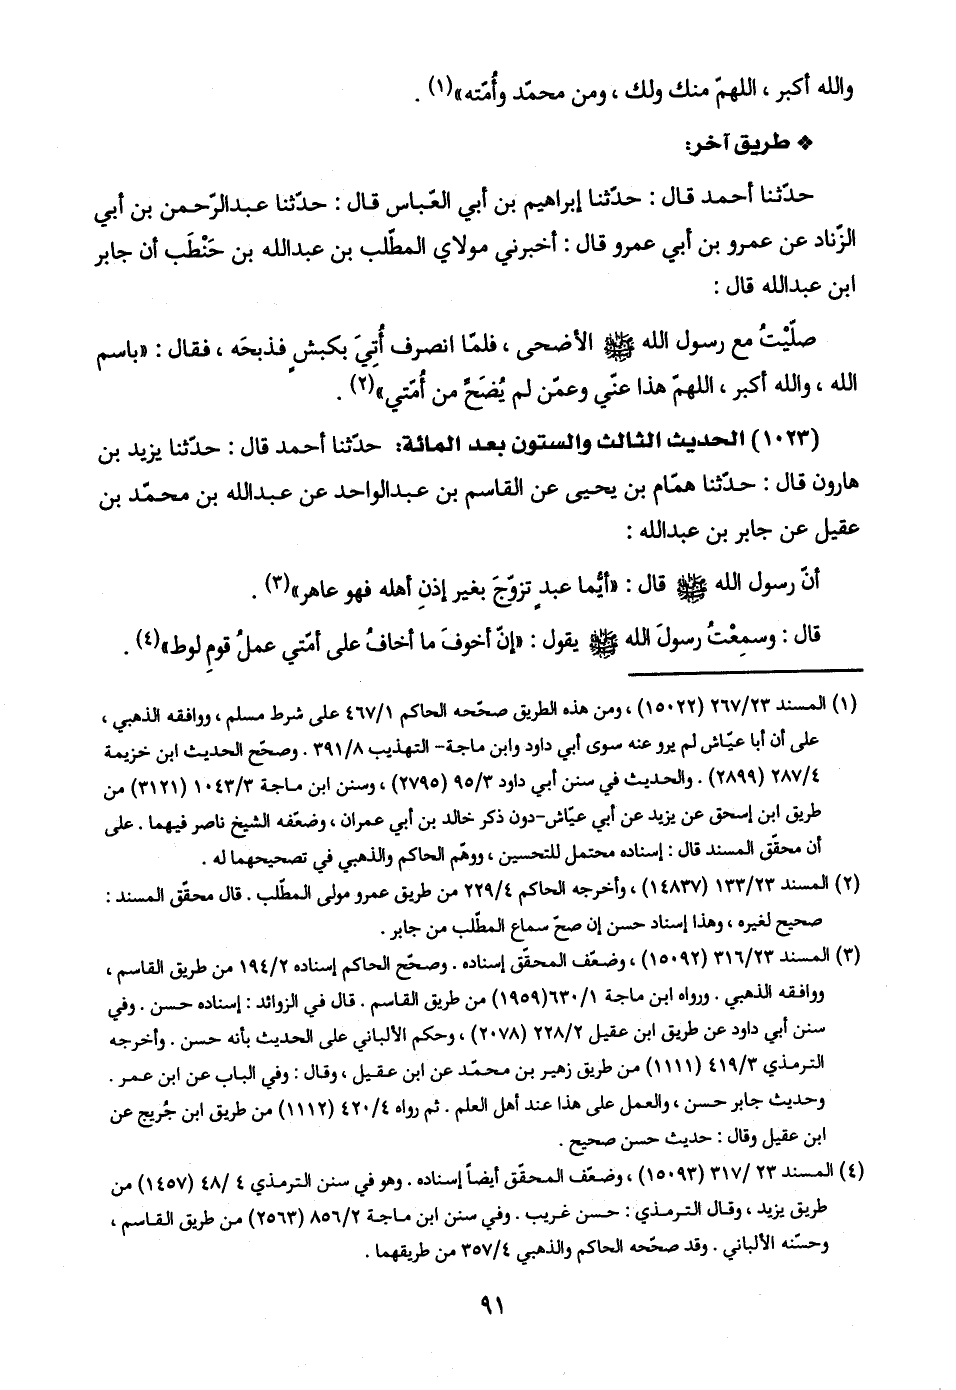 والله أكبر ، اللهمّ منك ولك ، ومن محمّد وأُمّته»(١) .
❖ طريق آخر:
حدّثنا أحمد قال : حدّثنا إبراهيم بن أبي العّباس قال : حدّثنا عبدالرّحمن بن أبي
الزّناد عن عمرو بن أبي عمرو قال : أخبرني مولاي المطّلب بن عبدالله بن حَنْطَب أن جابر
ابن عبدالله قال :
صلّيْتُ مع رسول الله ﷺ الأضحى ، فلمّا انصرف أُتِيَ بكبشٍ فذبحَه ، فقال : «باسم
الله ، والله أكبر ، اللهمّ هذا عنّي وعمّن لم يُضَحِّ من أُمّتي»(٢) .
(١٠٢٣) الحديث الثالث والستون بعد المائة: حدّثنا أحمد قال : حدّثنا يزيد بن
هارون قال : حدّثنا همّام بن يحيى عن القاسم بن عبدالواحد عن عبدالله بن محمّد بن
عقيل عن جابر بن عبدالله :
أنّ رسول الله ﷺ قال : «أيُّما عبدٍ تزوّجَ بغير إذنِ أهله فهو عاهر»(٣) .
قال : وسمِعْتُ رسولَ الله ﷺ يقول : «إنّ أخوفَ ما أخافُ على أمّتي عملُ قومِ لوط»(٤) .
(١) المسند ٢٦٧/٢٣ (١٥٠٢٢) ، ومن هذه الطريق صحّحه الحاكم ٤٦٧/١ على شرط مسلم ، ووافقه الذهبي ،
على أن أبا عيّاش لم يرو عنه سوى أبي داود وابن ماجة- التهذيب ٣٩١/٨ . وصحّح الحديث ابن خزيمة
٢٨٧/٤ (٢٨٩٩) . والحديث في سنن أبي داود ٩٥/٣ (٢٧٩٥) ، وسنن ابن ماجة ١٠٤٣/٣ (٣١٢١) من
طريق ابن إسحق عن يزيد عن أبي عيّاش-دون ذكر خالد بن أبي عمران ، وضعّفه الشيخ ناصر فيهما . على
أن محقّق المسند قال : إسناده محتمل للتحسين ، ووهّم الحاكم والذهبي في تصحيحهما له .
(٢) المسند ١٣٣/٢٣ (١٤٨٣٧) ، وأخرجه الحاكم ٢٢٩/٤ من طريق عمرو مولى المطّلب . قال محقّق المسند :
صحيح لغيره ، وهذا إسناد حسن إن صحّ سماع المطّلب من جابر .
(٣) المسند ٣١٦/٢٣ (١٥٠٩٢) ، وضعّف المحقّق إسناده . وصحّح الحاكم إسناده ١٩٤/٢ من طريق القاسم ،
ووافقه الذهبي . ورواه ابن ماجة ٦٣٠/١(١٩٥٩) من طريق القاسم . قال في الزوائد : إسناده حسن . وفي
سنن أبي داود عن طريق ابن عقيل ٢٢٨/٢ (٢٠٧٨) ، وحكم الألباني على الحديث بأنه حسن . وأخرجه
الترمذي ٤١٩/٣ (١١١١) من طريق زهير بن محمّد عن ابن عقيل ، وقال : وفي الباب عن ابن عمر .
وحديث جابر حسن ، والعمل على هذا عند أهل العلم . ثم رواه ٤٢٠/٤ (١١١٢) من طريق ابن جُريج عن
ابن عقيل وقال : حديث حسن صحيح .
(٤) المسند ٢٣ /٣١٧ (١٥٠٩٣) ، وضعّف المحقّق أيضاً إسناده . وهو في سنن الترمذي ٤ /٤٨ (١٤٥٧) من
طريق يزيد ، وقال الترمذي : حسن غريب . وفي سنن ابن ماجة ٨٥٦/٢ (٢٥٦٣) من طريق القاسم ،
وحسّنه الألباني . وقد صحّحه الحاكم والذهبي ٣٥٧/٤ من طريقهما .
٩١